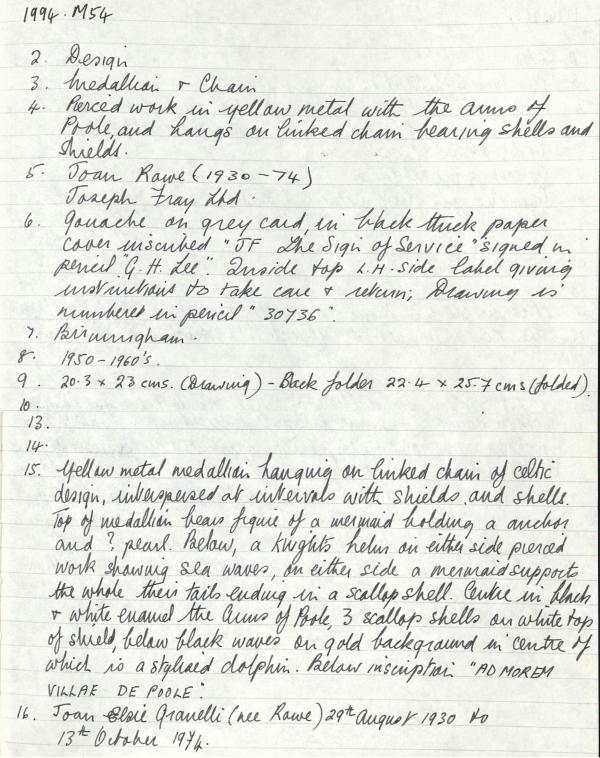 1994. M54
2. Design
3. Medallion & Chain
4. Pierced work in yellow metal with the arms of
Poole, and hangs on linked chain bearing shells and
shields.
5. Joan Rowe (1930-74)
Joseph Fray Ltd.
6. Gouache on grey card, in black thick paper
cover inscribed "JF The Sign of Service" signed in
pencil "G. H. Lee". Inside top L.H. side label giving
instructions to take care & return; Drawing is
numbered in pencil "30736".
7. Birmingham.
8. 1950-1960's.
9. 20.3 x 23 cms. (Drawing) - Back folder 22.4 x 25.7 cms (folded).
10.
13.
14.
15. Yellow metal medallion hanging on linked chain of celtic
design, interspersed at intervals with shields and shells.
Top of medallion bears figure of a mermaid holding a anchor
and ? pearl. Below, a Knights helm on either side pierced
work showing sea waves, on either side a mermaid supports
the whole their tails ending in a scallop shell. Centre in black
& white enamel the Arms of Poole, 3 scallop shells on white top
of shield, below black waves on gold background in centre of
which is a stylised dolphin. Below inscription "AD MOREM
VILLAE DE POOLE".
16. Joan Elsie Granelli (nee Rowe) 29th August 1930 to
13th October 1974.